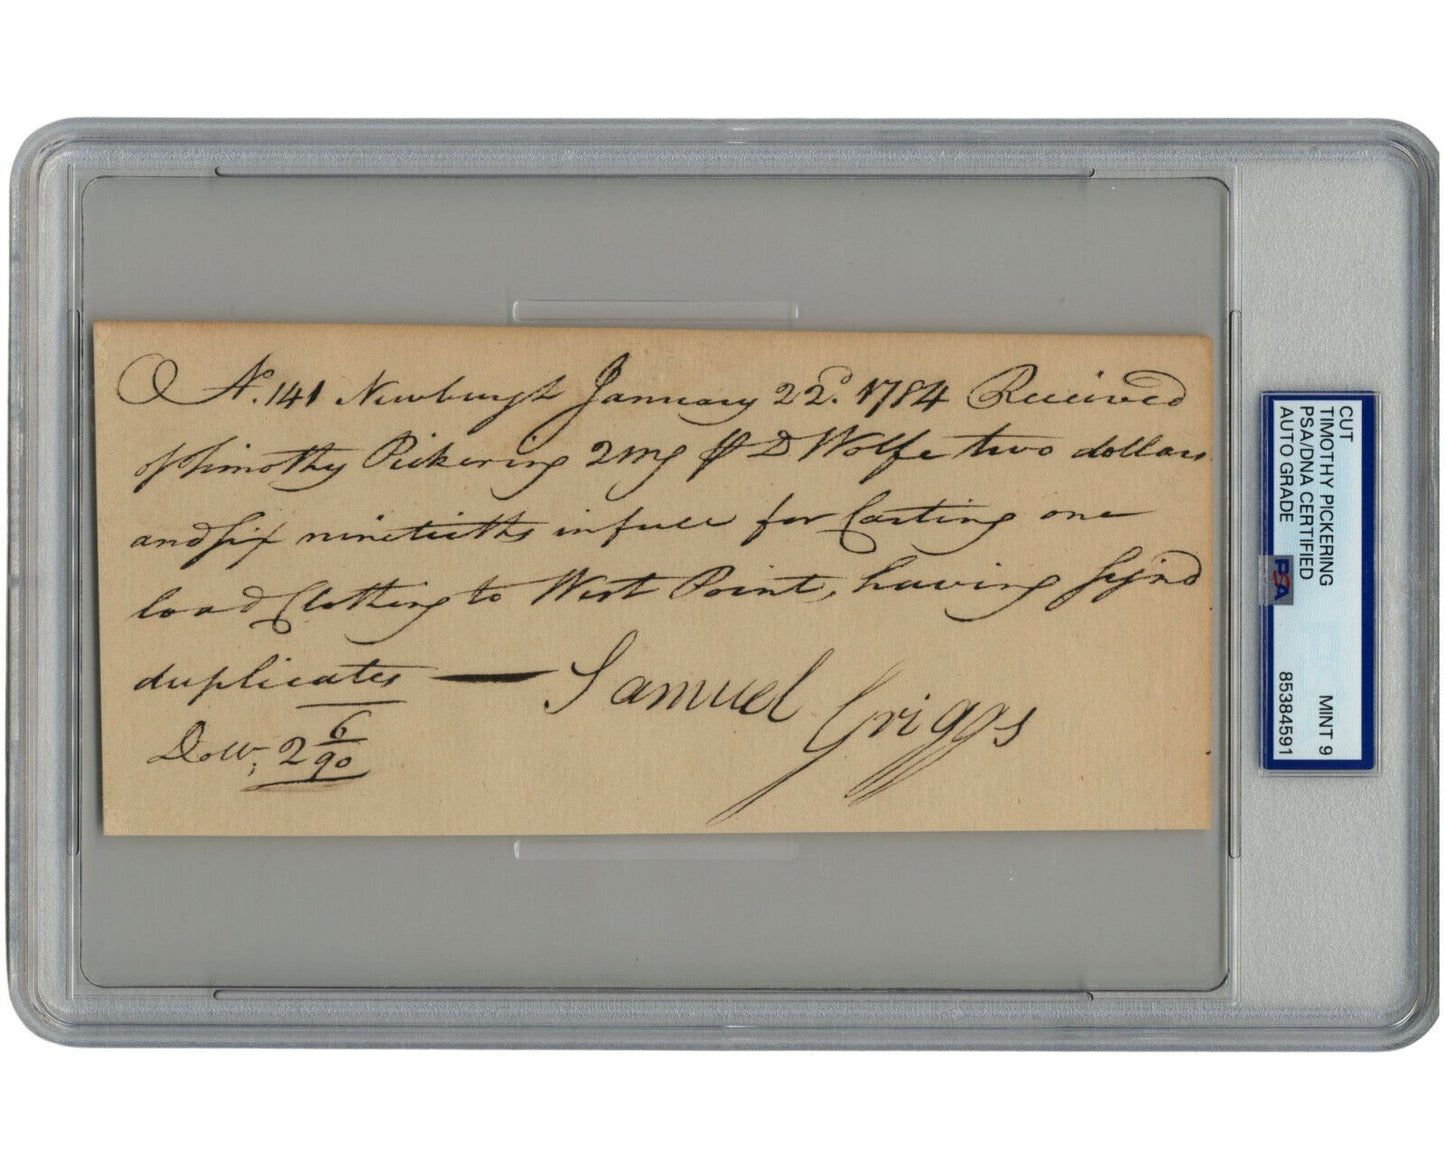 No. 141 Newburgh January 22d. 1784 Received
of Timothy Pickering 2Mg ⅌ D Wolfe two dollars
and six ninetieths in full for Carting one
load Clothing to West Point, having Sign'd
duplicates — Samuel Griggs
Doll; 2 6/90
CUT
TIMOTHY PICKERING
PSA/DNA CERTIFIED
AUTO GRADE
PSA
MINT 9
85384591